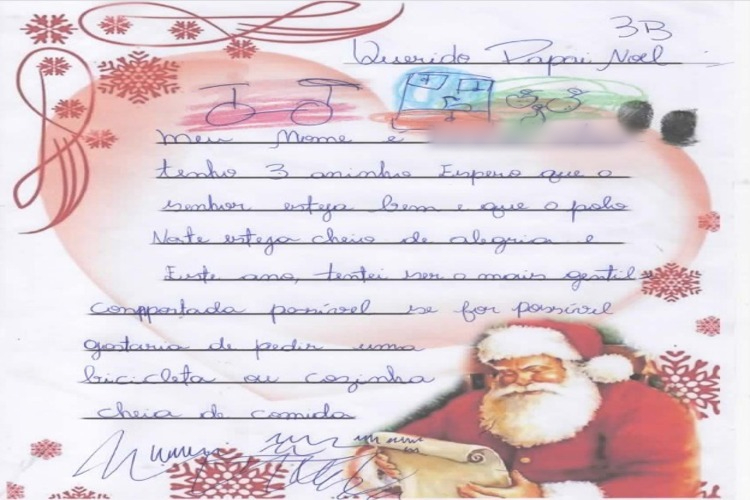 3B
Querido Papai Noel
meu Nome é
tenho 3 aninho Espero que o
senhor esteja bem e que o polo
Norte esteja cheio de alegria e
Este ano, tentei ser o mais gentil
compportada possível se for possível
gostaria de pedir uma
bicicleta ou cozinha
cheia de comida